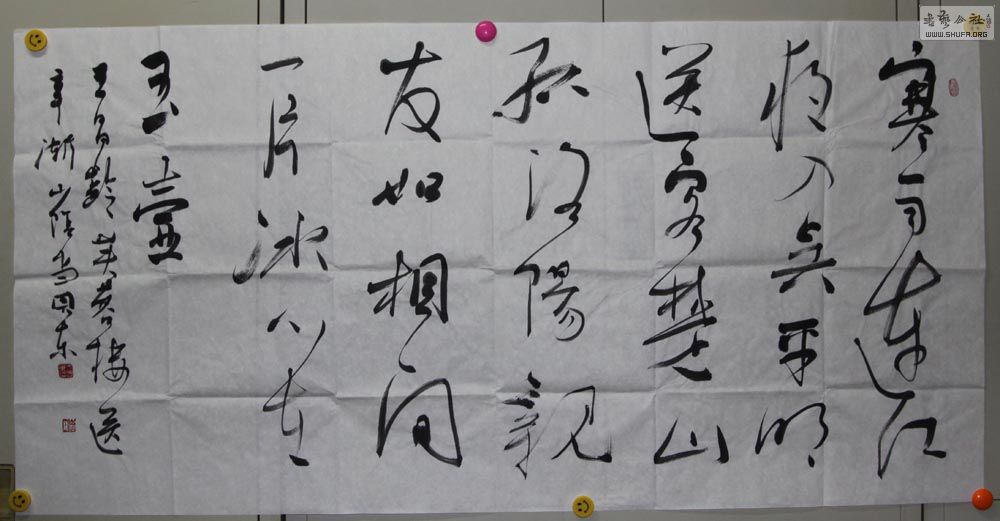 書藝公社
WWW.SHUFA.ORG
寒雨連江
夜入吳平明
送客楚山
孤洛陽親
友如相问
一片冰心在
玉壺
王昌齡芙蓉樓送
辛漸